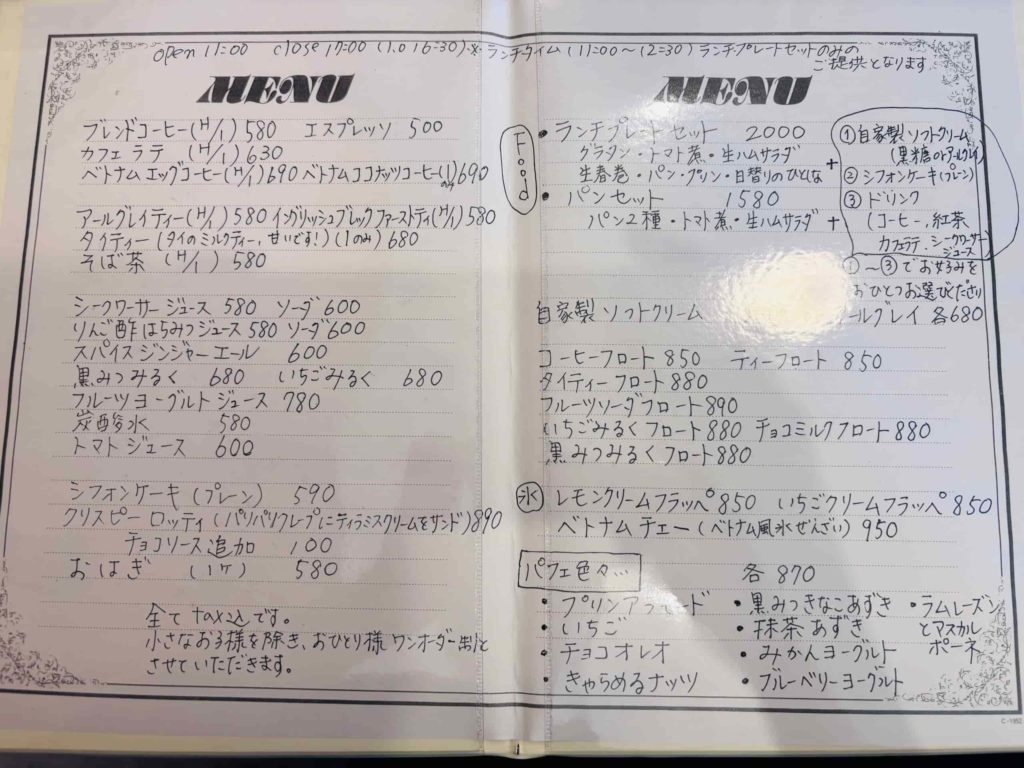 open 11:00 close 17:00 (L.O 16:30) ※ランチタイム (11:00～12:30) ランチプレートセットのみの
ご提供となります。
MENU
ブレンドコーヒー (H/I) 580 エスプレッソ 500
カフェラテ (H/I) 630
ベトナムエッグコーヒー (H/I) 690 ベトナムココナッツコーヒー (Iのみ) 690
アールグレイティー (H/I) 580 イングリッシュブレックファーストティ (H/I) 580
タイティー (タイのミルクティー、甘いです!) (Iのみ) 680
そば茶 (H/I) 580
シークワーサージュース 580 ソーダ 600
りんご酢はちみつジュース 580 ソーダ 600
スパイスジンジャーエール 600
黒みつみるく 680 いちごみるく 680
フルーツヨーグルトジュース 780
炭酸水 580
トマトジュース 600
シフォンケーキ (プレーン) 590
クリスピーロッティ (パリパリクレプにティラミスクリームをサンド) 890
チョコソース追加 100
おはぎ (1ケ) 580
全てtax込です。
小さなお子様を除き、おひとり様ワンオーダー制と
させていただきます。
MENU
Food
• ランチプレートセット 2000
グラタン・トマト煮・生ハムサラダ
生春巻・パン・プリン・日替りのひとしな +
• パンセット 1580
パン2種・トマト煮・生ハムサラダ +
① 自家製ソフトクリーム
(黒糖orアールグレイ)
② シフォンケーキ (プレーン)
③ ドリンク
(コーヒー、紅茶
カフェラテ、シークワーサー
ジュース
①～③でお好みを
おひとつお選びください
自家製ソフトクリーム ールグレイ 各680
コーヒーフロート 850 ティーフロート 850
タイティーフロート 880
フルーツソーダフロート 890
いちごみるくフロート 880 チョコミルクフロート 880
黒みつみるくフロート 880
氷 レモンクリームフラッペ 850 いちごクリームフラッペ 850
ベトナムチェー (ベトナム風氷ぜんざい) 950
パフェ色々… 各870
• プリンアラモード
• いちご
• チョコオレオ
• きゃらめるナッツ
• 黒みつきなこあずき
• 抹茶あずき
• みかんヨーグルト
• ブルーベリーヨーグルト
• ラムレーズン
とマスカル
ポーネ
C-1952